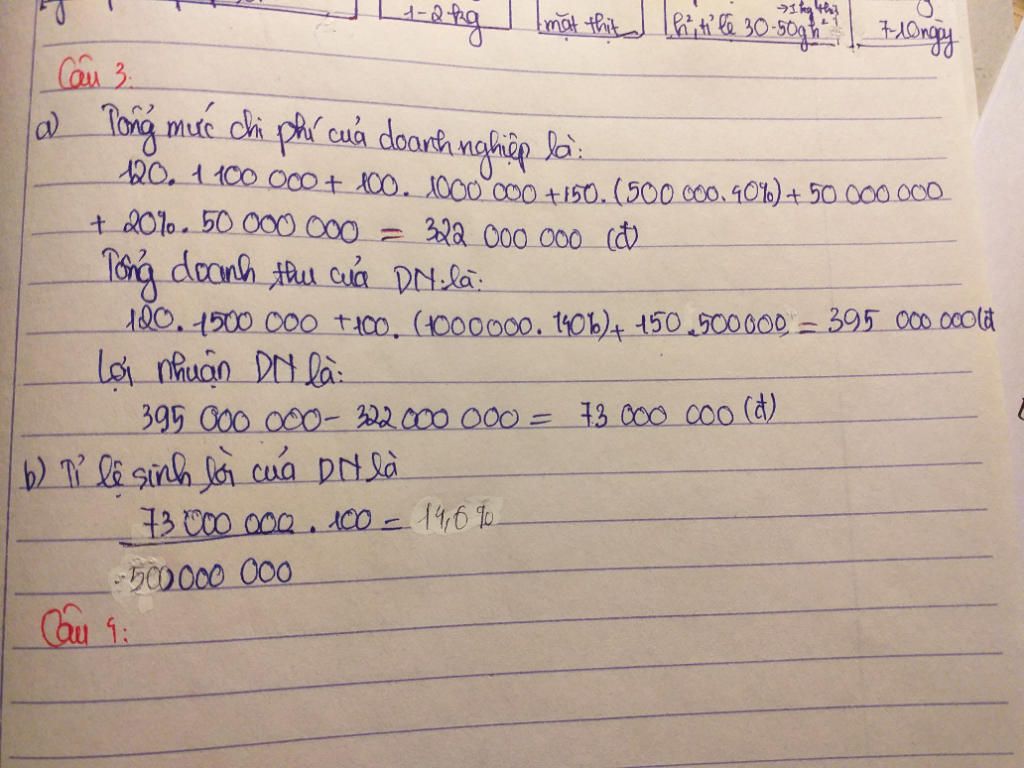 1-2kg
mặt thịt
→1kg thịt
h², tỉ lệ 30-50g h²
7-10 ngày
Câu 3:
a) Tổng mức chi phí của doanh nghiệp là:
120. 1 100 000 + 100. 1000 000 +150. (500 000. 40%) + 50 000 000
+ 20%. 50 000 000 = 322 000 000 (đ)
Tổng doanh thu của DN là:
120. 1500 000 +100. (1000000. 140%) + 150.500000 = 395 000 000(đ
Lợi nhuận DN là:
395 000 000 - 322 000 000 = 73 000 000 (đ)
b) Tỉ lệ sinh lời của DN là
73 000 000 . 100 = 14,6%
500 000 000
Câu 4: